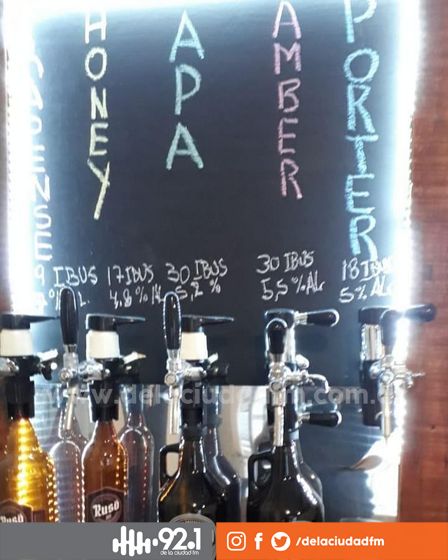 HONEY
APA
AMBER
PORTER
IBUS
17 IBUS
4,8 % AL
30 IBUS
5,2 %
30 IBUS
5,5 % AL
18 IBUS
5 % AL
www.delaciudadfm.com
Rusö
Rusö
92.1
de la ciudad fm
/delaciudadfm